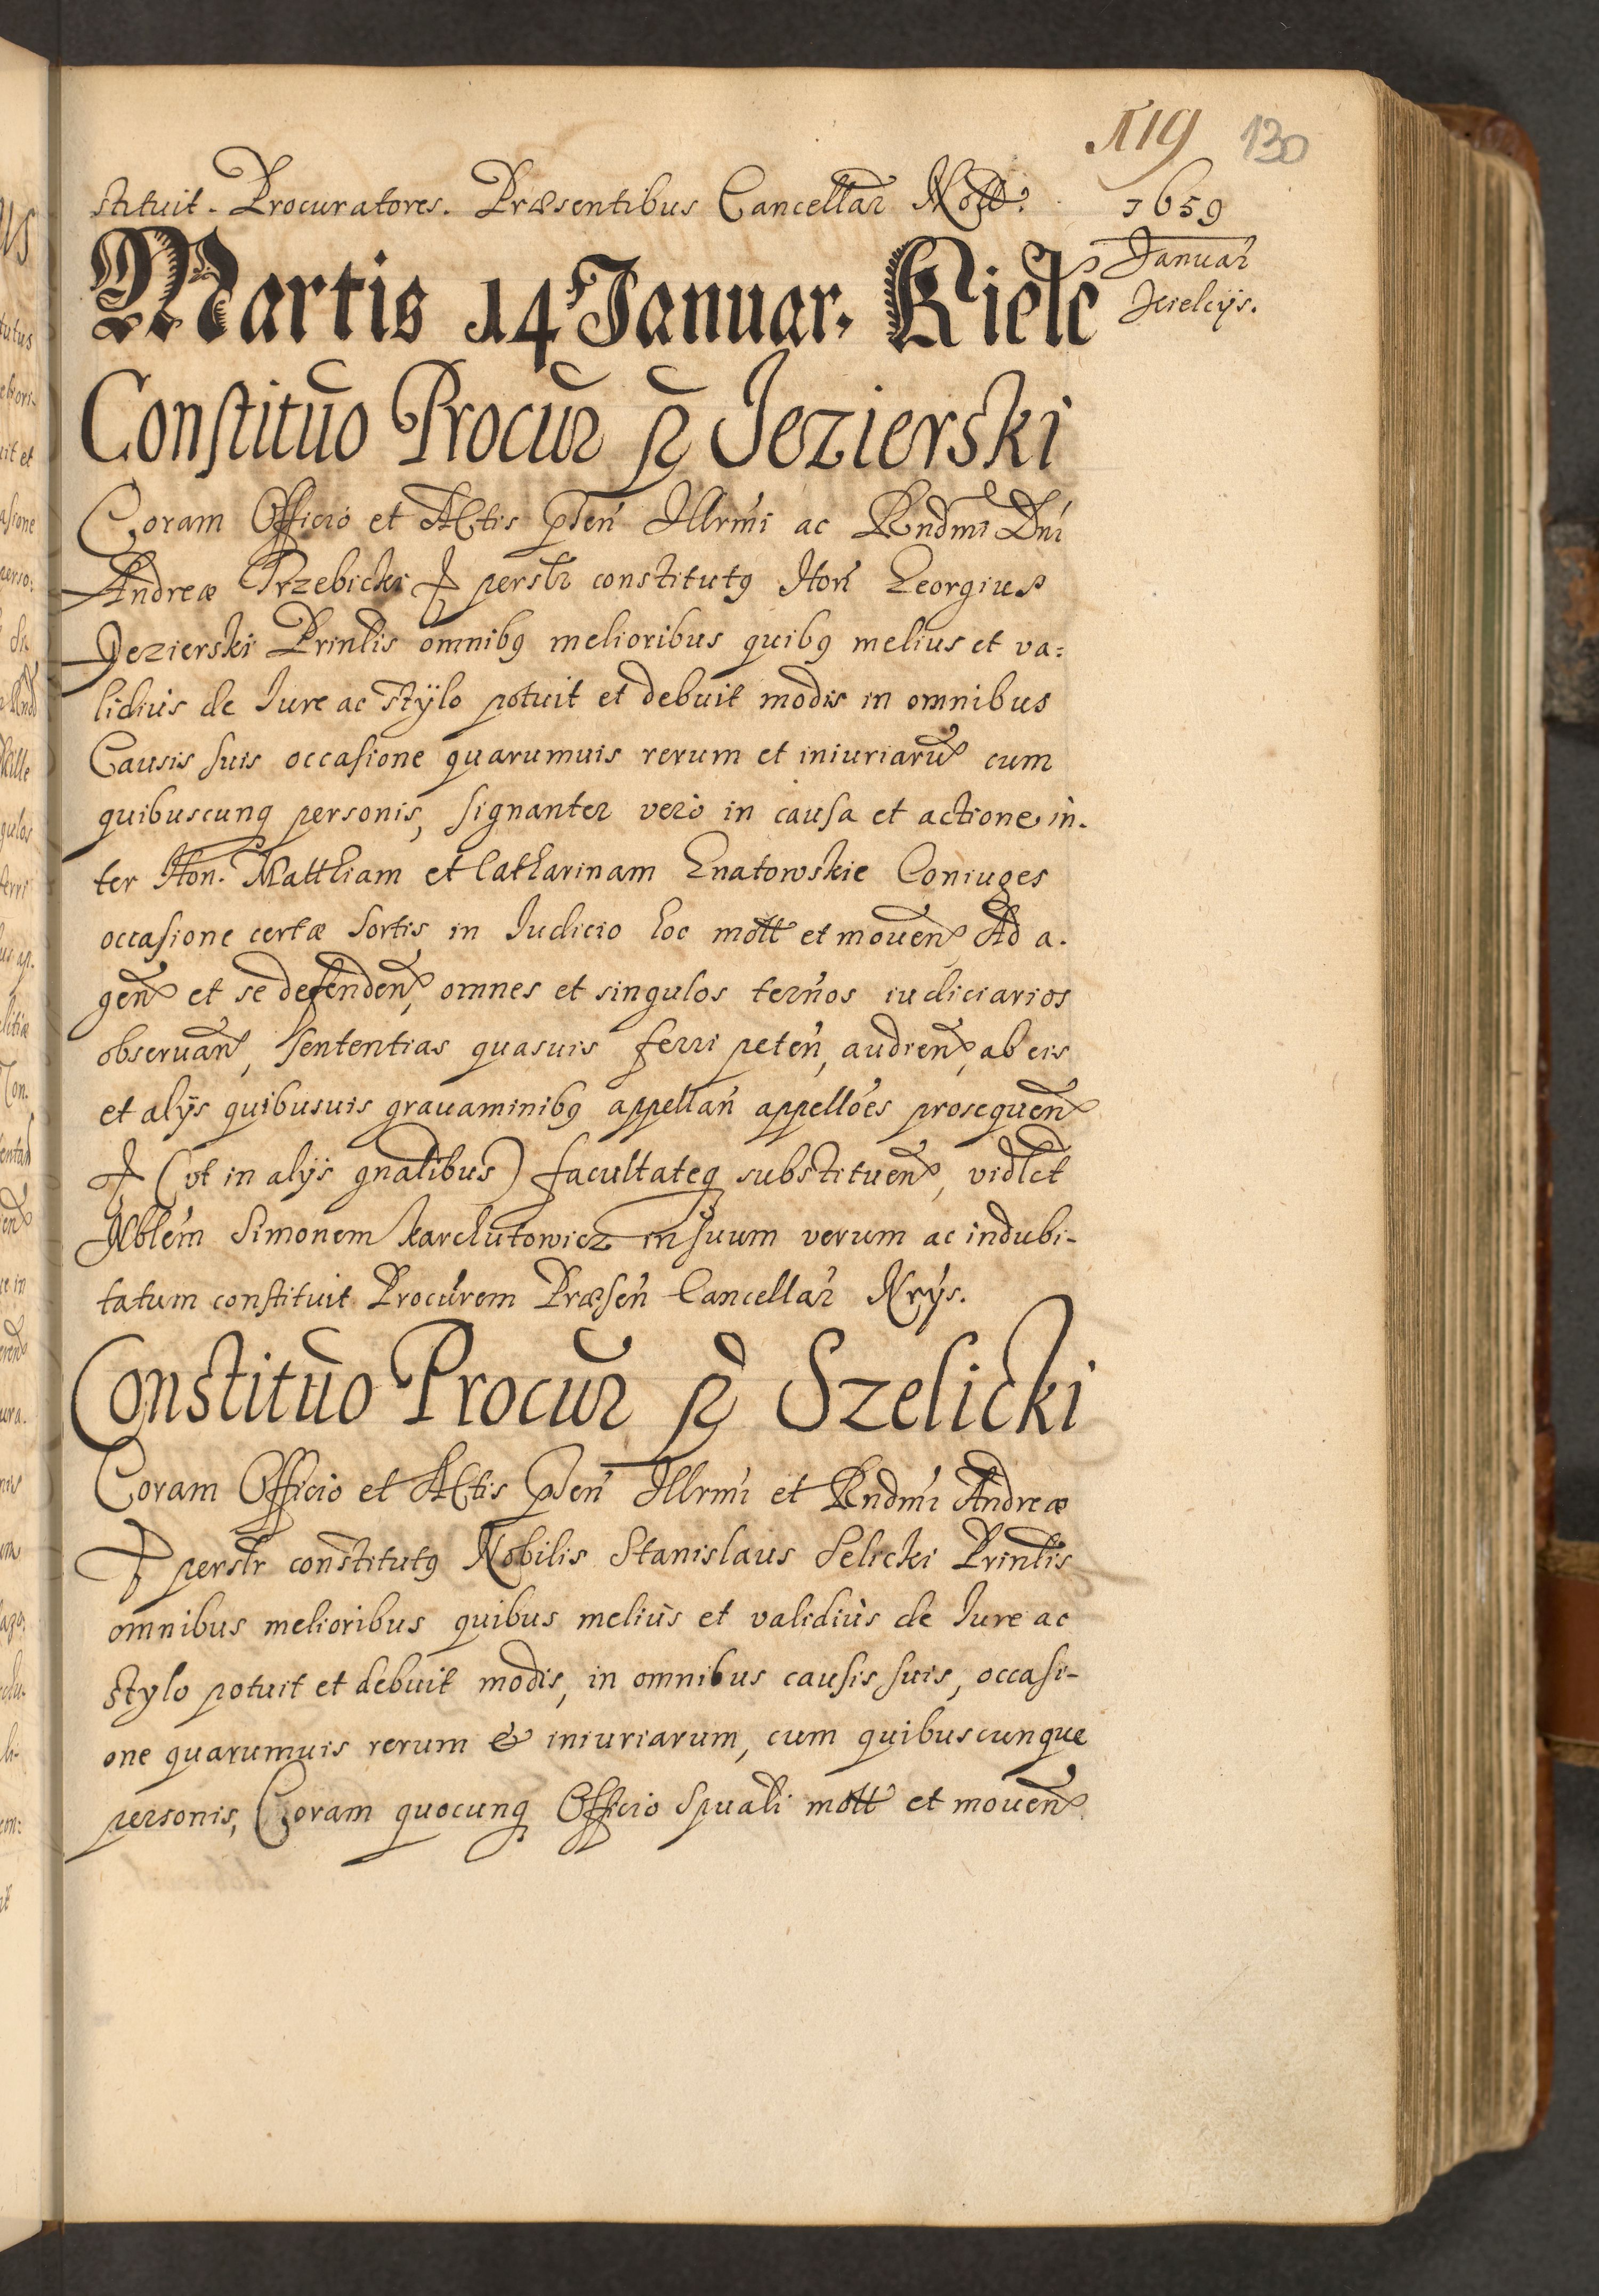 119 130
stituit. Procuratores. Præsentibus Cancellar Nott.
1659
Januar
Kielcijs.
Martis 14 Januar. Kielc
Constituo Procur p Jezierski
Coram Officio et Actis pñsen Illrmi ac Rndmi Dni
Andreæ Trzebicki & perslr constitutq Hon Georgius
Jezierski Prinlis omnibq melioribus quibq melius et va=
lidius de Iure ac stylo potuit et debuit modis in omnibus
Causis suis occasione quarumuis rerum et iniuriarum cum
quibuscunq personis, signanter vero in causa et actione in-
ter Hon. Matthiam et Catharinam Gnatowskie Coniuges
occasione certæ sortis in Iudicio hoc mott et mouen Ad a-
gen et se defenden, omnes et singulos terños iudiciarios
obseruan, sententias quasuis ferri peteñ, audien, ab eis
et alijs quibusuis grauaminibq appellañ appelloes prosequen
& (vt in alijs gnalibus) facultateq substituen, vidlct
Nblem Simonem Karchutowicz in suum verum ac indubi-
tatum constituit Procurem Præseñ Cancellar Nrys.
Constituo Procur p Szelicki
Coram Officio et Actis pñseñ Illrmi et Rndmi Andreæ
& perslr constitutq Nobilis Stanislaus Selicki Prinlis
omnibus melioribus quibus meliùs et validiùs de Iure ac
stylo potuit et debuit modis, in omnibus causis suis, occasi-
one quarumuis rerum & iniuriarum, cum quibuscunque
personis, Coram quocunq Officio Spuali mott et mouen